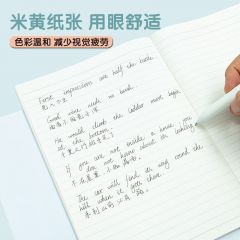 米黄纸张 用眼舒适
色彩温和 减少视觉疲劳
First impressions are half the battle
Good wine needs no bush.
He would climb the ladder must begin
at the bottom.
If you are not inside a house, you
do not know about its leaking
The car will find its way round the
hill when it gets there.